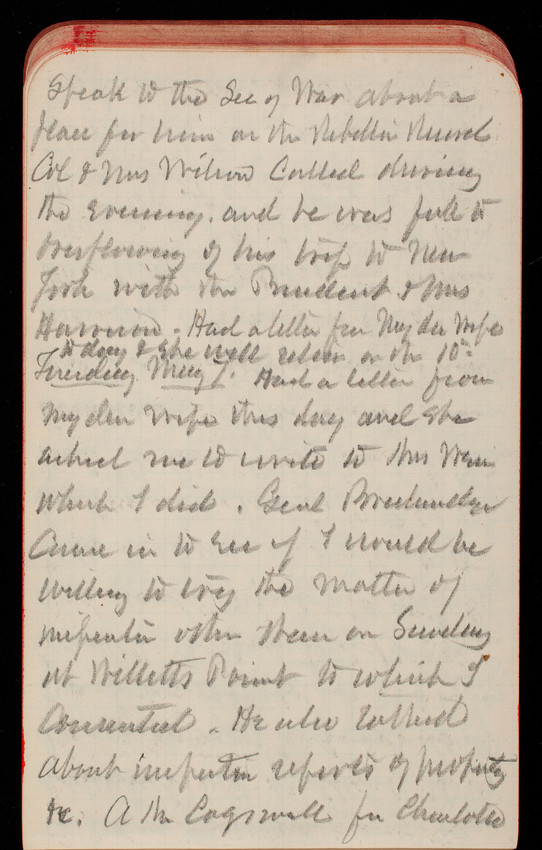 Speak to the Sec of War about a
place for him on the Rebellion Record
Col & Mrs Wilson Called during
the evening. and he was full to
overflowing of his trip to New
York with the President & Mrs
Harrison. Had a letter from My dear Wife
to day & she will return on the 10th
Tuesday May 7. Had a letter from
my dear Wife this day and she
asked me to write to Mrs
which I did. Genl Breckinridge
Came in to see if I would be
willing to try the matter of
inspection other than on Sunday
at Willetts Point to which I
Consented. He also talked
about inspection reports of property
&c. A Mr Cogswell from Charlotte